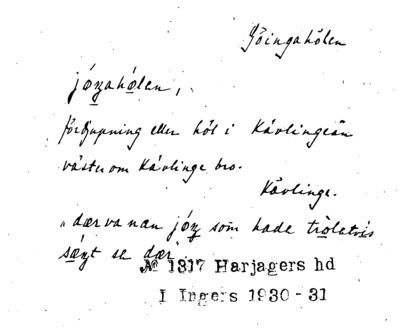 Göingahölen
jözahölen,
fördjupning eller höl i Kävlingeån
väster om Kävlinge bro.
Kävlinge.
„ dær va nan jöz som hade trolatvis
sænt se dær
№ 1317 Harjagers hd
I Ingers 1930-31